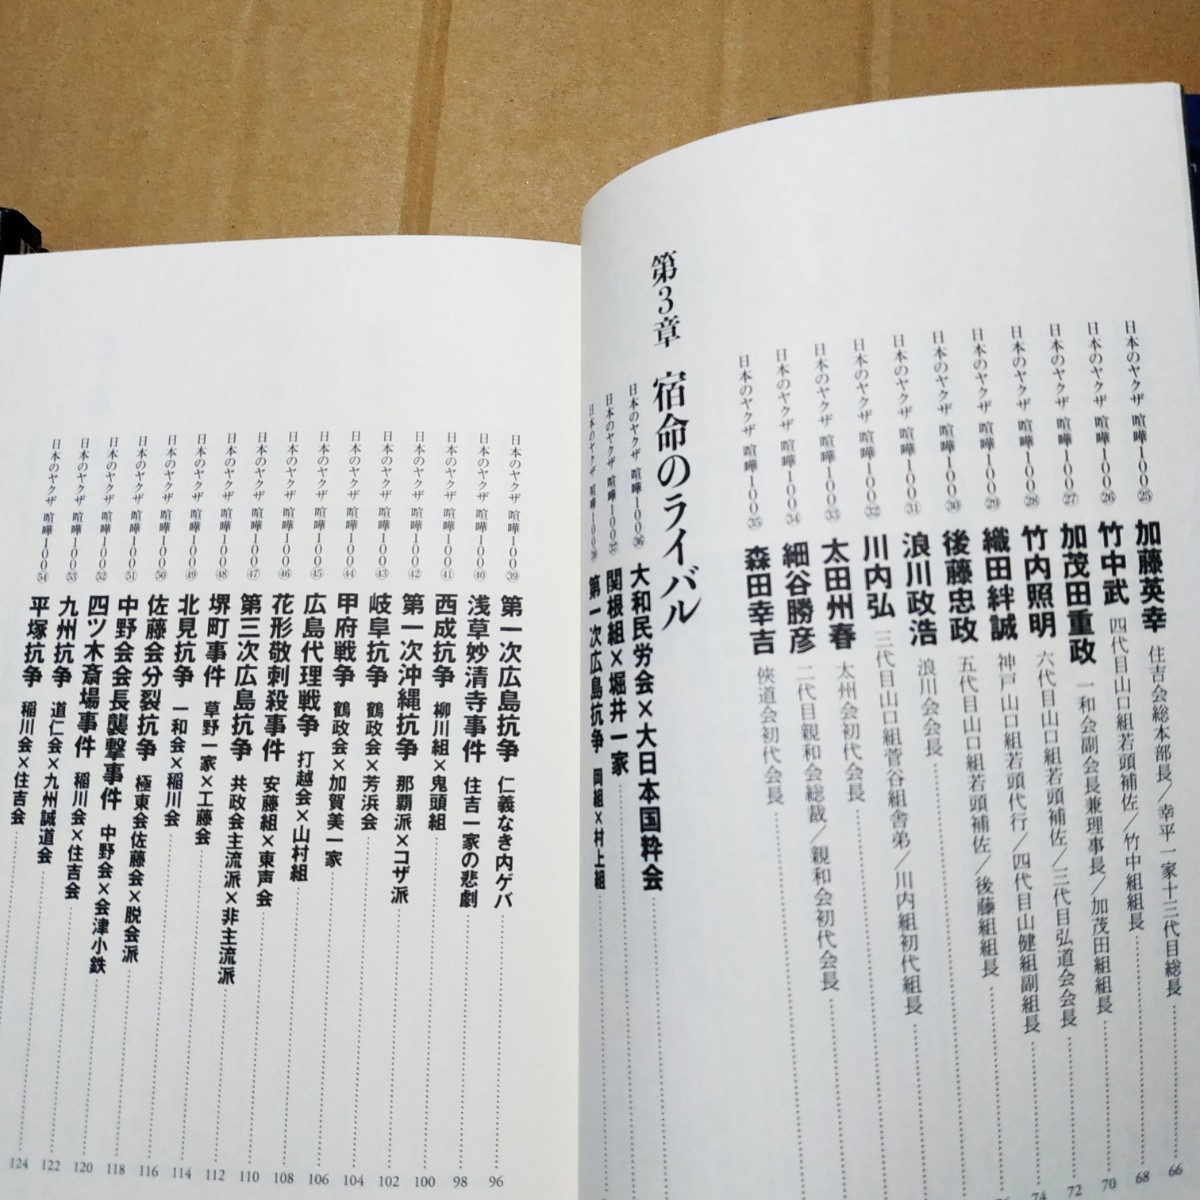 日本のヤクザ 喧嘩100㉕ 加藤英幸 住吉会総本部長/幸平一家十三代目総長 66
日本のヤクザ 喧嘩100㉖ 竹中武 四代目山口組若頭補佐/竹中組組長 68
日本のヤクザ 喧嘩100㉗ 加茂田重政 一和会副会長兼理事長/加茂田組組長 70
日本のヤクザ 喧嘩100㉘ 竹内照明 六代目山口組若頭補佐/三代目弘道会会長 72
日本のヤクザ 喧嘩100㉙ 織田絆誠 神戸山口組若頭代行/四代目山健組副組長 74
日本のヤクザ 喧嘩100㉚ 後藤忠政 五代目山口組若頭補佐/後藤組組長
日本のヤクザ 喧嘩100㉛ 浪川政浩 浪川会会長
日本のヤクザ 喧嘩100㉜ 川内弘 三代目山口組菅谷組舎弟/川内組初代組長
日本のヤクザ 喧嘩100㉝ 太田州春 太州会初代会長
日本のヤクザ 喧嘩100㉞ 細谷勝彦 二代目親和会総裁/親和会初代会長
日本のヤクザ 喧嘩100㉟ 森田幸吉 俠道会初代会長
第3章 宿命のライバル
日本のヤクザ 喧嘩100㊱ 大和民労会×大日本国粋会
日本のヤクザ 喧嘩100㊲ 関根組×堀井一家
日本のヤクザ 喧嘩100㊳ 第一次広島抗争 岡組×村上組
日本のヤクザ 喧嘩100㊴ 第一次広島抗争 仁義なき内ゲバ 96
日本のヤクザ 喧嘩100㊵ 浅草妙清寺事件 住吉一家の悲劇 98
日本のヤクザ 喧嘩100㊶ 西成抗争 柳川組×鬼頭組 100
日本のヤクザ 喧嘩100㊷ 第一次沖縄抗争 那覇派×コザ派 102
日本のヤクザ 喧嘩100㊸ 岐阜抗争 鶴政会×芳浜会 104
日本のヤクザ 喧嘩100㊹ 甲府戦争 鶴政会×加賀美一家 106
日本のヤクザ 喧嘩100㊺ 広島代理戦争 打越会×山村組 108
日本のヤクザ 喧嘩100㊻ 花形敬刺殺事件 安藤組×東声会 110
日本のヤクザ 喧嘩100㊼ 第三次広島抗争 共政会主流派×非主流派 112
日本のヤクザ 喧嘩100㊽ 堺町事件 草野一家×工藤会 114
日本のヤクザ 喧嘩100㊾ 北見抗争 一和会×稲川会 116
日本のヤクザ 喧嘩100㊿ 佐藤会分裂抗争 極東会佐藤会×脱会派 118
日本のヤクザ 喧嘩100 51 中野会会長襲撃事件 中野会×会津小鉄 120
日本のヤクザ 喧嘩100 52 四ツ木斎場事件 稲川会×住吉会 122
日本のヤクザ 喧嘩100 53 九州抗争 道仁会×九州誠道会 124
日本のヤクザ 喧嘩100 54 平塚抗争 稲川会×住吉会